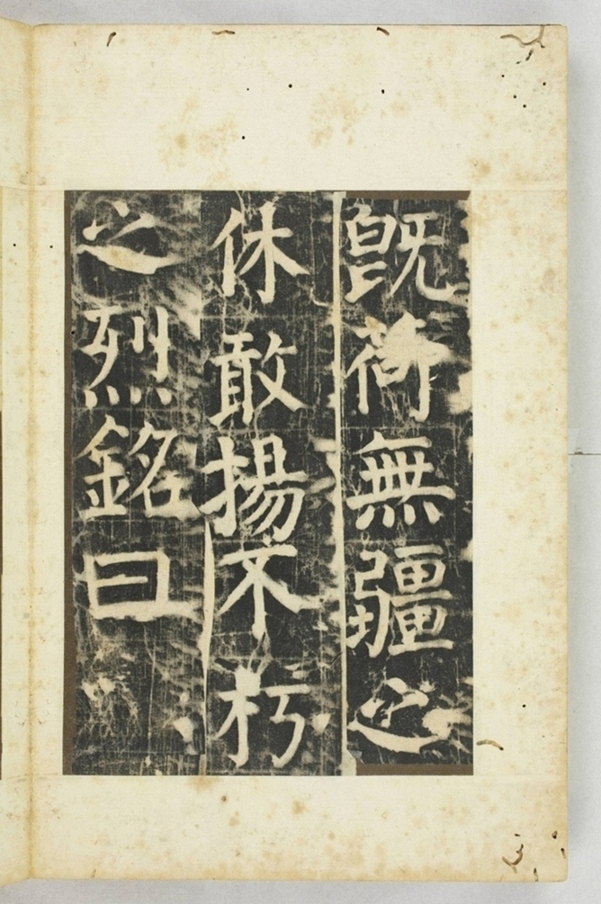 既荷無疆之
休敢揚不朽
之烈銘曰